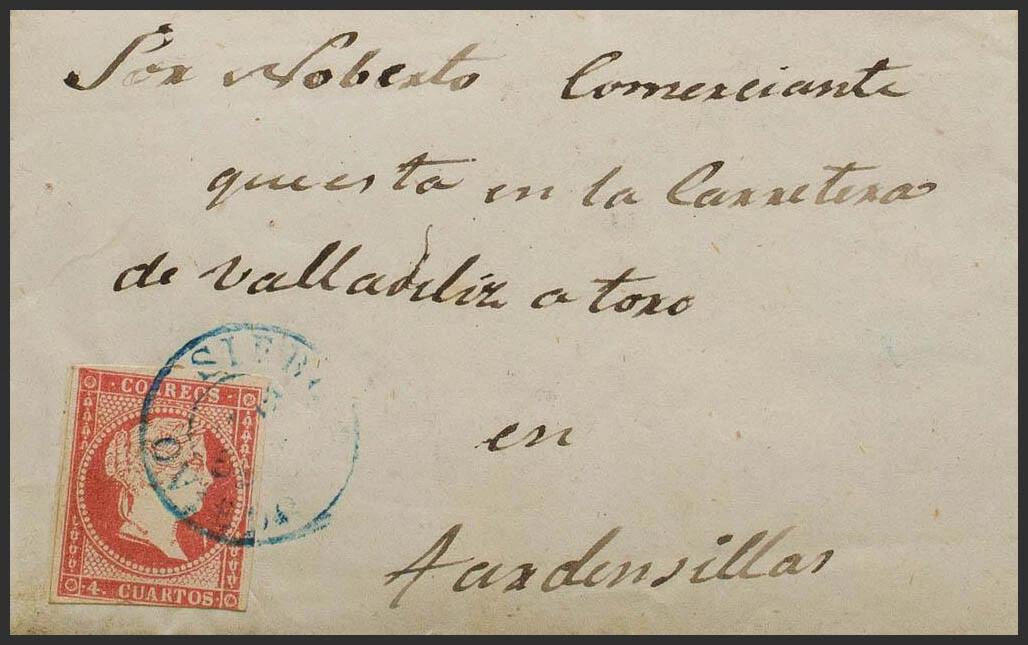 Sor Noberto Comerciante
que esta en la Carretera
de valladiliz a toro
en
Tardensillas
CORREOS
4. CUARTOS